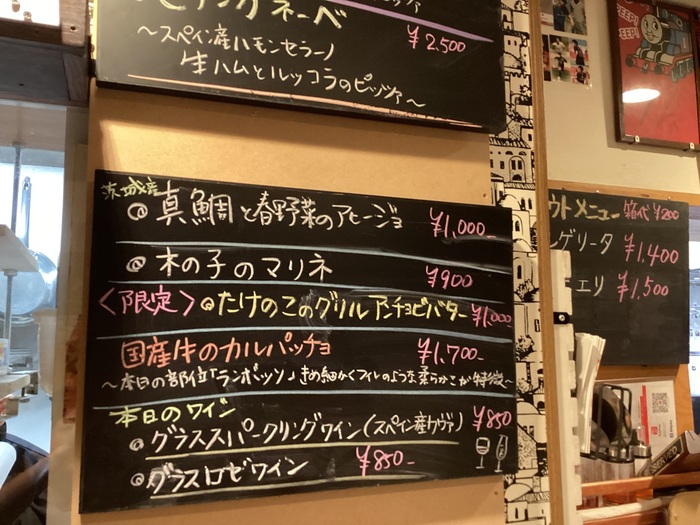 ピアンカネーベ
¥2,500
〜スペイン産ハモンセラーノ
生ハムとルッコラのピッツァ〜
茨城産
@真鯛と春野菜のアヒージョ ¥1,000-
@木の子のマリネ ¥900
〈限定〉@たけのこのグリルアンチョビバター ¥1,000
国産牛のカルパッチョ ¥1,700-
〜本日の部位「ランボソ」きめ細かくフィレのような柔らかさが特徴〜
本日のワイン
@グラススパークリングワイン(スペイン産カヴァ) ¥850
@グラスロゼワイン ¥850-
ウトメニュー 箱代¥200
レゲリータ ¥1,400
エリ ¥1,500
PEEP!
PEEP!